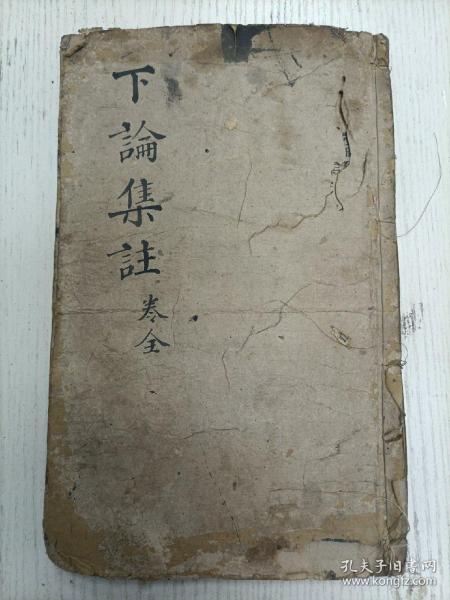 下論集註
卷全
孔夫子旧书网
www.kongfz.com